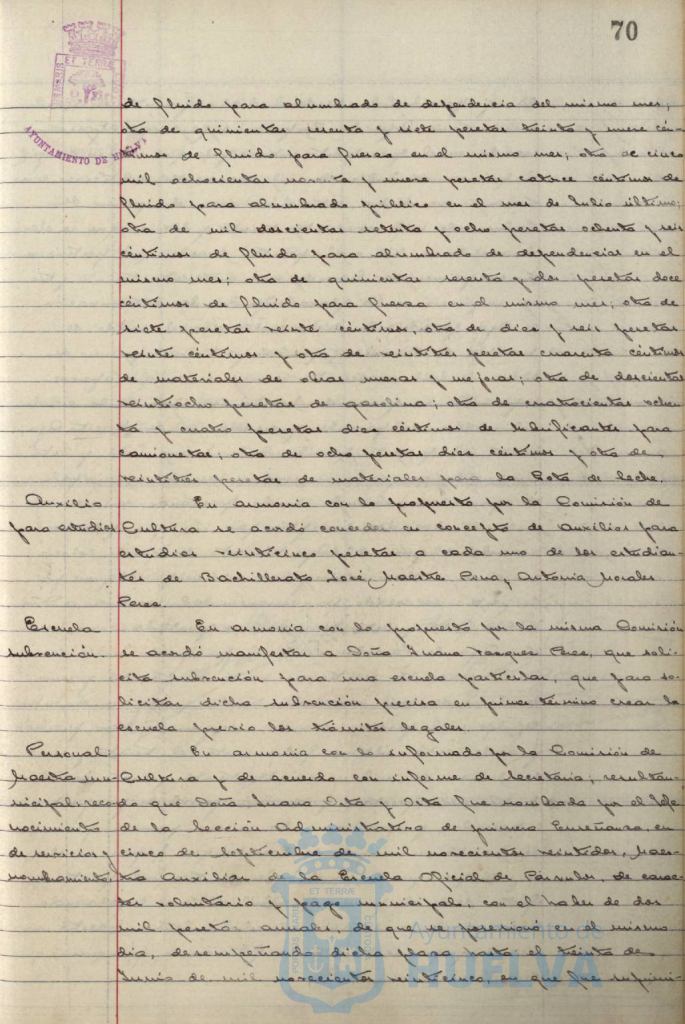 70
ET TERRÆ
AYUNTAMIENTO DE HUELVA
de fluido para alumbrado de dependencia del mismo mes;
otra de quinientas sesenta y siete pesetas treinta y nueve cén-
timos de fluido para fuerza en el mismo mes; otra de cinco
mil ochocientas noventa y nueve pesetas catorce céntimos de
fluido para alumbrado público en el mes de Julio último;
otra de mil doscientas setenta y ocho pesetas ochenta y seis
céntimos de fluido para alumbrado de dependencias en el
mismo mes; otra de quinientas sesenta y dos pesetas doce
céntimos de fluido para fuerza en el mismo mes; otra de
siete pesetas veinte céntimos, otra de diez y seis pesetas
veinte céntimos y otra de veintitres pesetas cuarenta céntimos
de materiales de obras nuevas y mejoras; otra de doscientas
veintiocho pesetas de gasolina; otra de cuatrocientas ochen-
ta y cuatro pesetas diez céntimos de lubrificantes para
camionetas; otra de ocho pesetas diez céntimos y otra de
veintitres pesetas de materiales para la Gota de Leche.
Auxilio
para estudios
En armonia con lo propuesto por la Comisión de
Cultura se acordó conceder en concepto de auxilios para
estudios veinticinco pesetas a cada uno de los estudian-
tes de Bachillerato José Maestre Pena y Antonia Morales
Perez.
Escuela
subvención.
En armonia con lo propuesto por la misma Comisión
se acordó manifestar a Doña Juana Vazquez Perez, que soli-
cita subvención para una escuela particular, que para so-
licitar dicha subvención precisa en primer término crear la
escuela previo los trámites legales.
Personal:
Maestra mu-
nicipal: reco-
nocimiento
de servicios y
nombramiento.
En armonia con lo informado por la Comisión de
Cultura y de acuerdo con informe de Secretaria; resultan-
do que Doña Juana Orta y Orta fue nombrada por el Jefe
de la Sección Administrativa de primera Enseñanza, en
cinco de Septiembre de mil novecientos veintidos, Maes-
tra Auxiliar de la Escuela Oficial de Párvulos, de carac-
ter voluntario y pago municipal, con el haber de dos
mil pesetas anuales, de que se posesionó en el mismo
dia, desempeñando dicha plaza hasta el treinta de
Junio de mil novecientos veinticinco, en que fue suprimi-
Ayuntamiento de
HUELVA